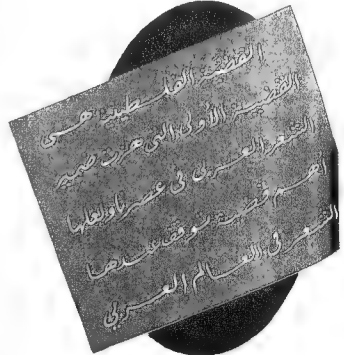 القضية الفلسطينية هي
القضية الأولى التي هزت ضمير
الشعر العربي في عصرنا ولعلها
اهم قضية توقف عندها
الشعر في العالم العربي